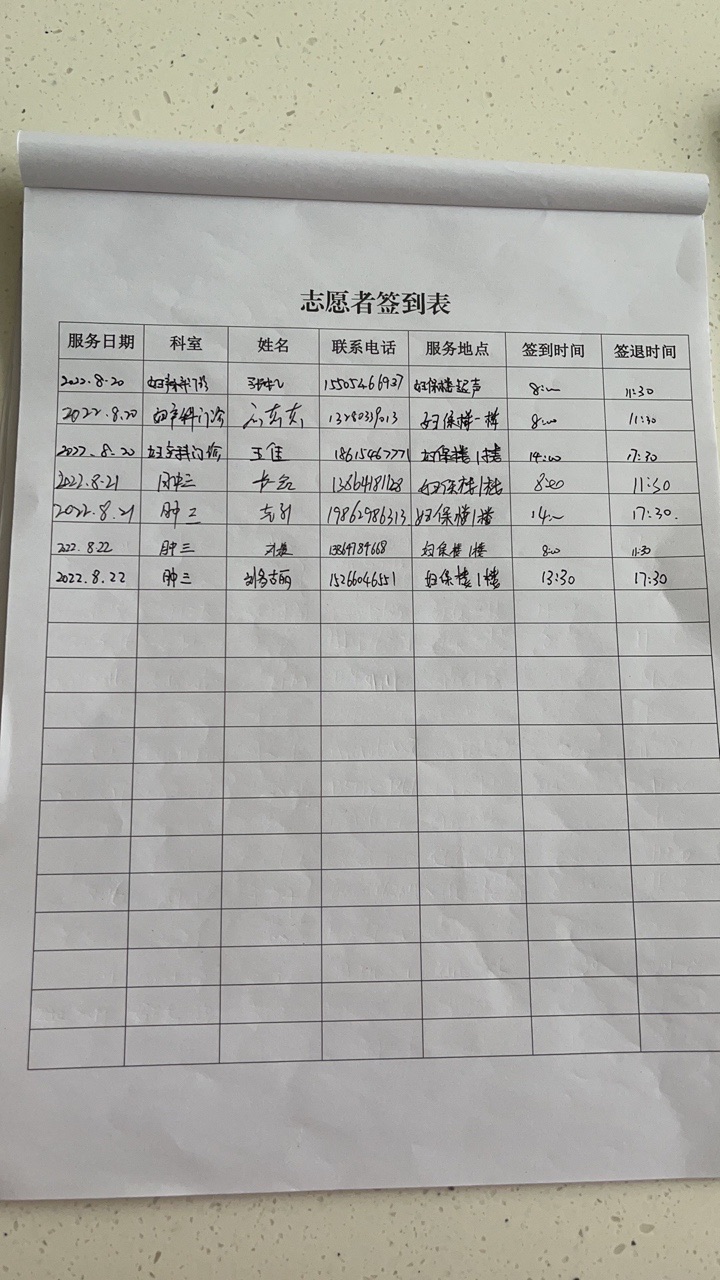 志愿者签到表
服务日期 科室 姓名 联系电话 服务地点 签到时间 签退时间
2022.8.20 妇产科门诊 15505466937 妇保楼超声 8:00 11:30
2022.8.20 妇产科门诊 妇保楼一楼 8:00 11:30
2022.8.20 妇产科门诊 王佳 18615467771 妇保楼1楼 14:00 17:30
2022.8.21 肿三 13864181128 妇保楼1楼 8:00 11:30
2022.8.21 肿三 19862986313 妇保楼1楼 14:00 17:30.
2022.8.22 肿三 妇保楼1楼 8:00 11:30
2022.8.22 肿三 15266046551 妇保楼1楼 13:30 17:30